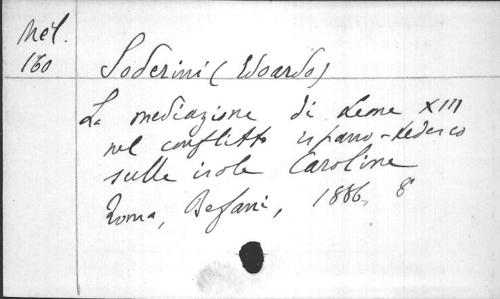 Mél.
160
Soderini (Edoardo)
La mediazione di Leone XIII
nel conflitto ispano-tedesco
sulle isole Caroline
Roma, Befani, 1886, 8°